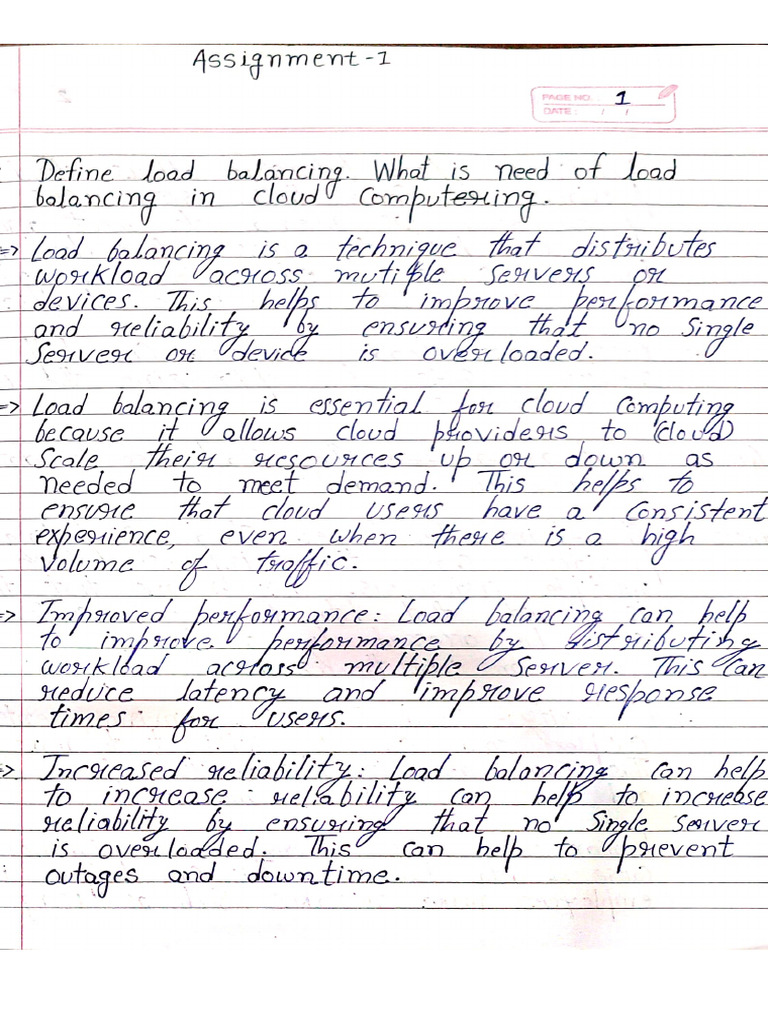 Assignment-1
PAGE NO. 1
DATE: / /
Define load balancing. What is need of load
balancing in cloud computering.
=> Load balancing is a technique that distributes
workload across mutiple servers or
devices. This helps to improve performance
and reliability by ensuring that no single
server or device is overloaded.
=> Load balancing is essential for cloud computing
because it allows cloud providers to (cloud)
scale their resources up or down as
needed to meet demand. This helps to
ensure that cloud users have a consistent
experience, even when there is a high
volume of traffic.
=> Improved performance: Load balancing can help
to improve performance by distributing
workload across multiple server. This can
reduce latency and improve response
times for users.
=> Increased reliability: Load balancing can help
to increase reliability can help to increase
reliability by ensuring that no single server
is overloaded. This can help to prevent
outages and downtime.